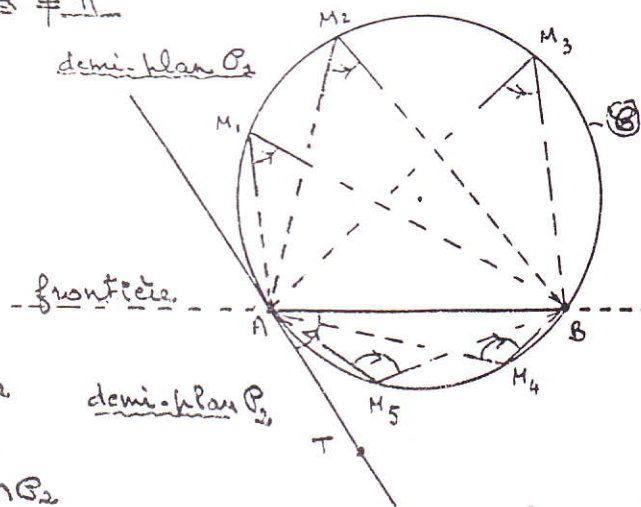 M2
demi-plan P1
M3
M1
C
frontière
A
B
demi-plan P2
M5
M4
T
∩P2